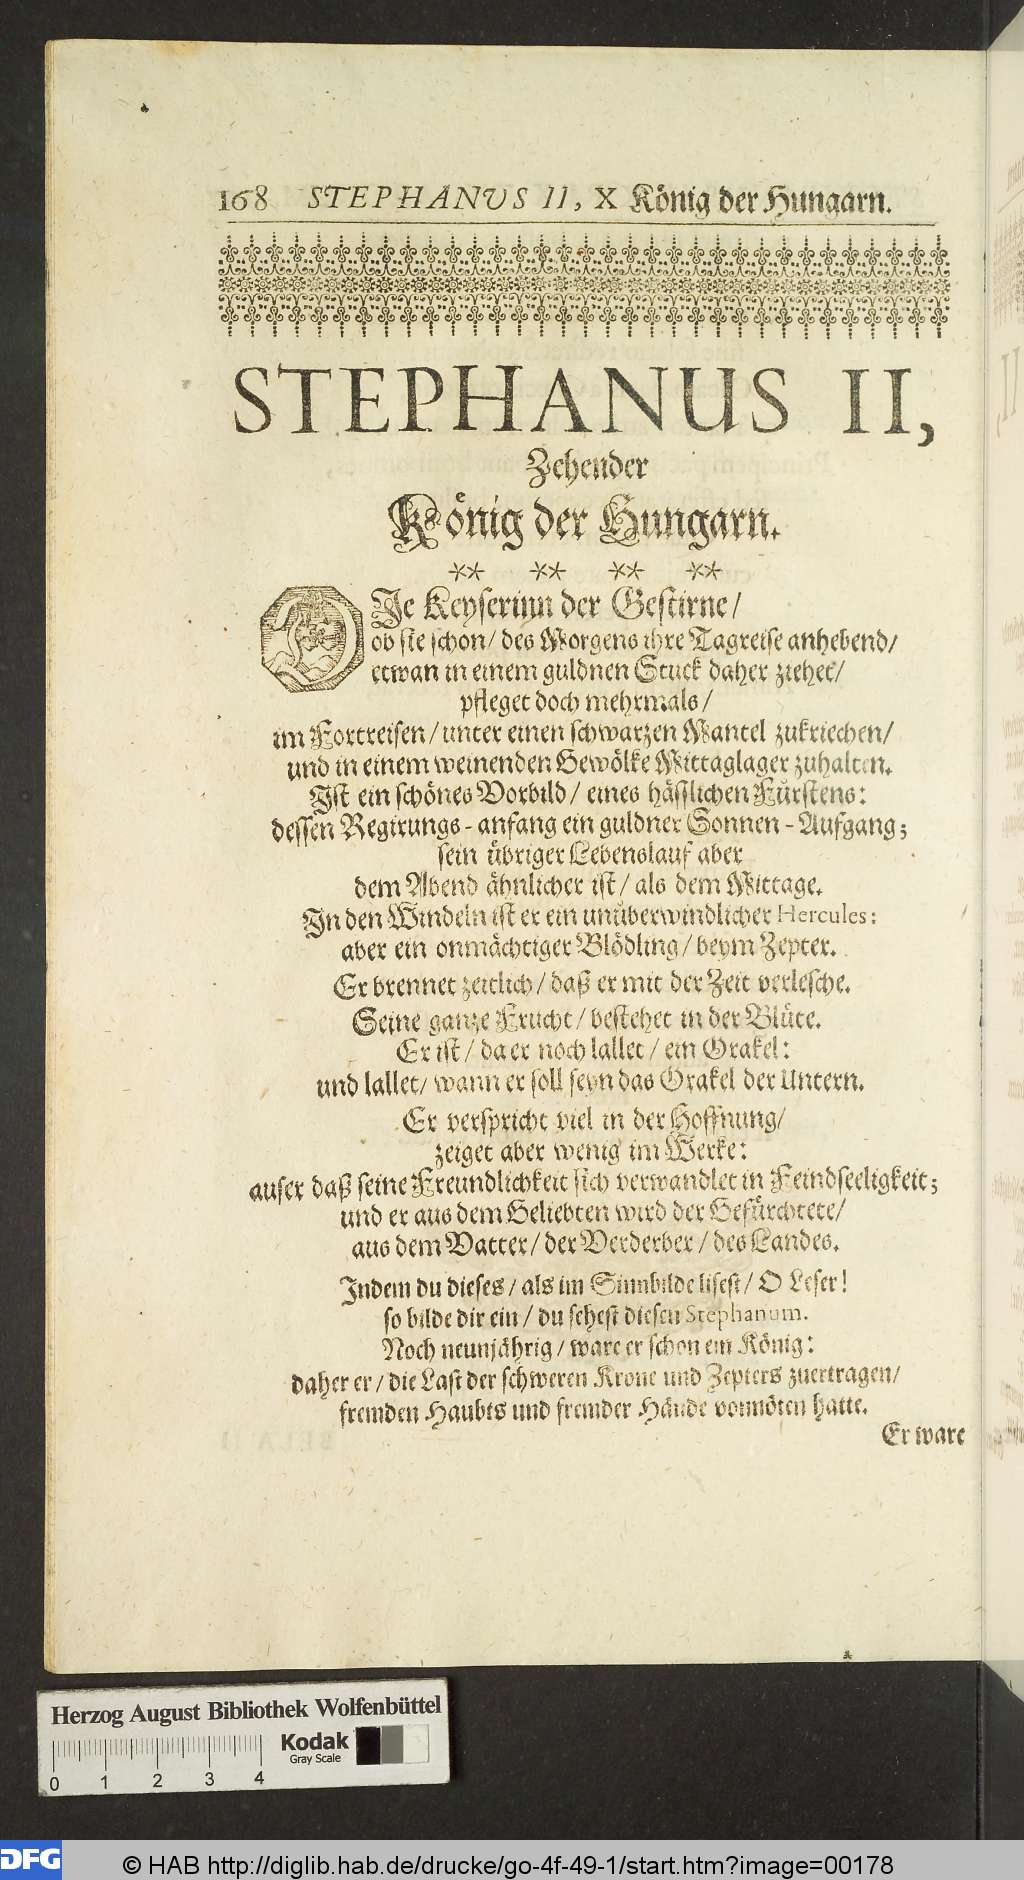 168 STEPHANVS II, X König der Hungarn.
STEPHANUS II,
Zehender
König der Hungarn.
** ** ** **
DJe Keyserinn der Gestirne/
ob sie schon/ des Morgens ihre Tagreise anhebend/
etwan in einem guldnen Stuck daher ziehet/
pfleget doch mehrmals/
im Fortreisen/ unter einen schwarzen Mantel zukriechen/
und in einem weinenden Gewölke Mittaglager zuhalten.
Jst ein schönes Vorbild/ eines hässlichen Fürstens:
dessen Regirungs-anfang ein guldner Sonnen-Aufgang;
sein übriger Lebenslauf aber
dem Abend ähnlicher ist/ als dem Mittage.
Jn den Windeln ist er ein unüberwindlicher Hercules:
aber ein onmächtiger Blödling/ beym Zepter.
Er brennet zeitlich/ daß er mit der Zeit verlesche.
Seine ganze Frucht/ bestehet in der Blüte.
Er ist/ da er noch lallet/ ein Orakel:
und lallet/ wann er soll seyn das Orakel der Untern.
Er verspricht viel in der Hoffnung/
zeiget aber wenig im Werke:
auser daß seine Freundlichkeit sich verwandlet in Feindseeligkeit;
und er aus dem Geliebten wird der Gefürchtete/
aus dem Vatter/ der Verderber/ des Landes.
Jndem du dieses/ als im Sinnbilde lisest/ O Leser!
so bilde dir ein/ du sehest diesen Stephanum.
Noch neunjährig/ ware er schon ein König:
daher er/ die Last der schweren Krone und Zepters zuertragen/
fremden Haubts und fremder Hände vonnöten hatte.
Er ware
Herzog August Bibliothek Wolfenbüttel
Kodak
Gray Scale
0 1 2 3 4
DFG
© HAB http://diglib.hab.de/drucke/go-4f-49-1/start.htm?image=00178